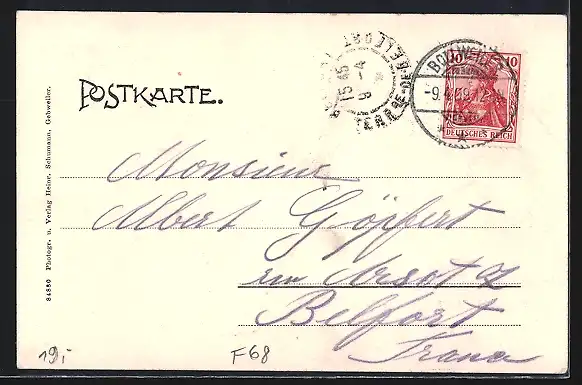 POSTKARTE.
BOLLWEILER
-9.4.09.12-
10
DEUTSCHES REICH
DELLE
15 45
9 -4
84880 Photogr. u. Verlag Heinr. Schumann, Gebweiler.
Monsieur
Albert Göpfert
Arsot
Belfort
France
19,-
F68